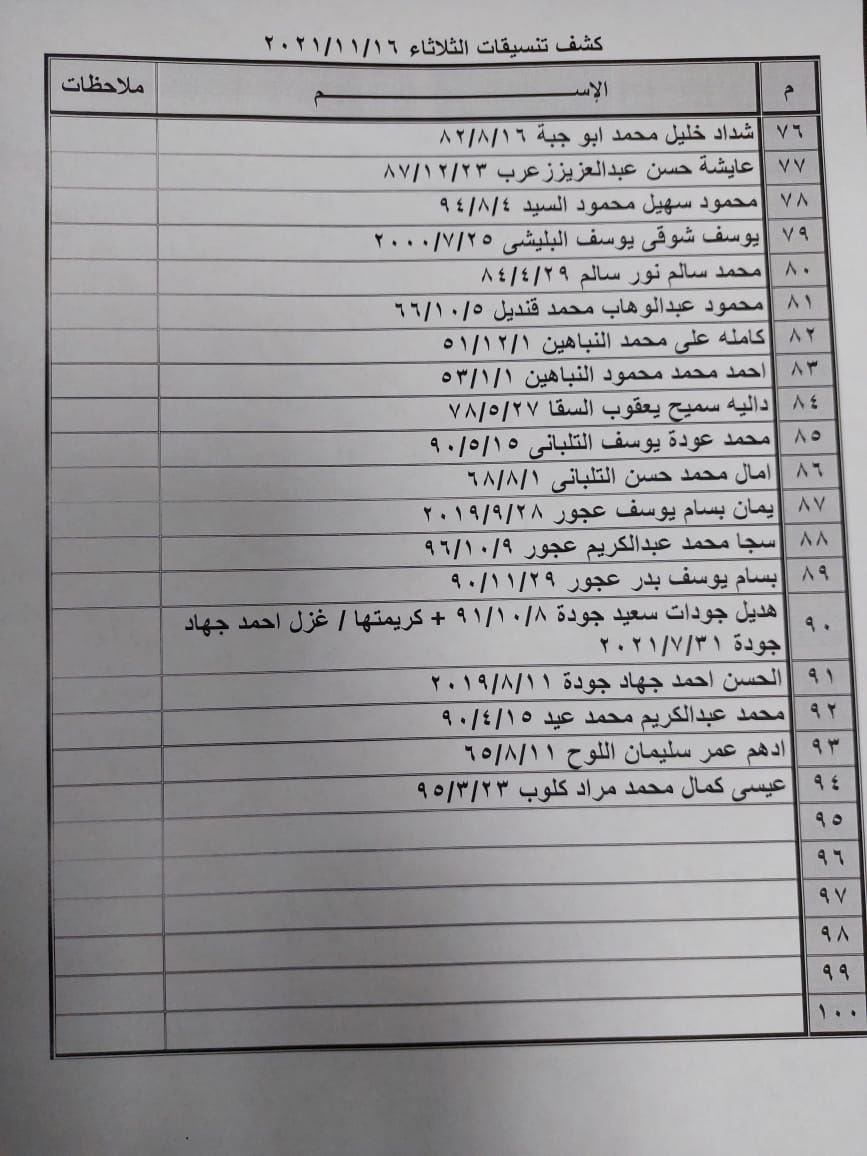 كشف تنسيقات الثلاثاء ٢٠٢١/١١/١٦
م الإســـــــــــــم ملاحظات
٧٦ شداد خليل محمد ابو جبة ٨٢/٨/١٦
٧٧ عايشة حسن عبدالعزيززعرب ٨٧/١٢/٢٣
٧٨ محمود سهيل محمود السيد ٩٤/٨/٤
٧٩ يوسف شوقى يوسف البليشى ٢٠٠٠/٧/٢٥
٨٠ محمد سالم نور سالم ٨٤/٤/٢٩
٨١ محمود عبدالوهاب محمد قنديل ٦٦/١٠/٥
٨٢ كامله على محمد النباهين ٥١/١٢/١
٨٣ احمد محمد محمود النباهين ٥٣/١/١
٨٤ داليه سميح يعقوب السقا ٧٨/٥/٢٧
٨٥ محمد عودة يوسف التلبانى ٩٠/٥/١٥
٨٦ امال محمد حسن التلبانى ٦٨/٨/١
٨٧ يمان بسام يوسف عجور ٢٠١٩/٩/٢٨
٨٨ سجا محمد عبدالكريم عجور ٩٦/١٠/٩
٨٩ بسام يوسف بدر عجور ٩٠/١١/٢٩
٩٠ هديل جودات سعيد جودة ٩١/١٠/٨ + كريمتها / غزل احمد جهاد
جودة ٢٠٢١/٧/٣١
٩١ الحسن احمد جهاد جودة ٢٠١٩/٨/١١
٩٢ محمد عبدالكريم محمد عيد ٩٠/٤/١٥
٩٣ ادهم عمر سليمان اللوح ٦٥/٨/١١
٩٤ عيسى كمال محمد مراد كلوب ٩٥/٣/٢٣
٩٥
٩٦
٩٧
٩٨
٩٩
١٠٠